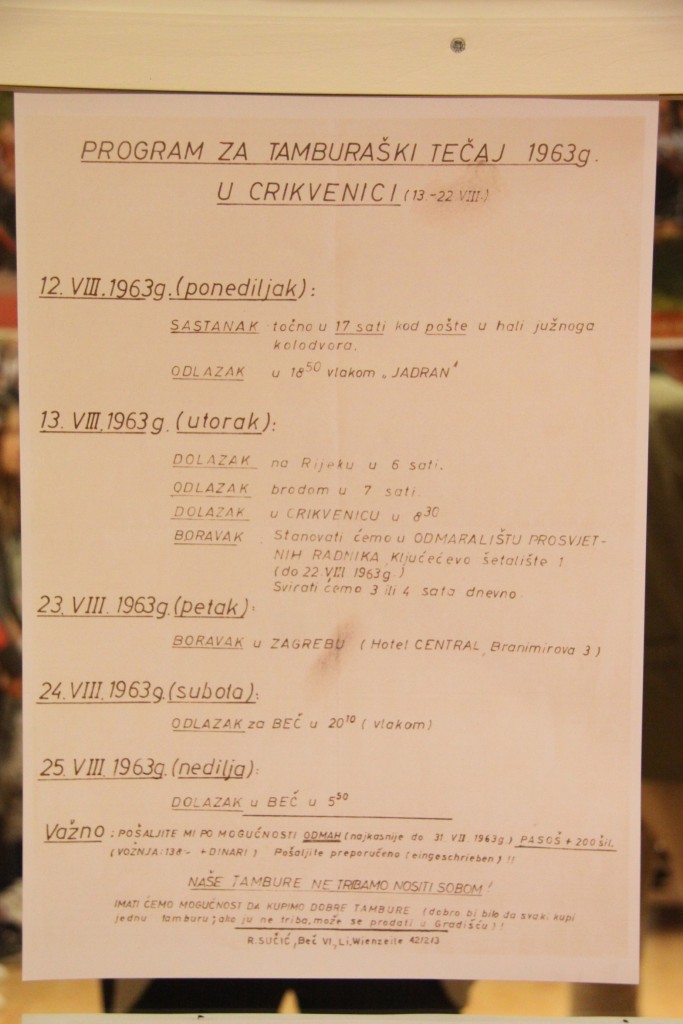 PROGRAM ZA TAMBURAŠKI TEČAJ 1963g.
U CRIKVENICI (13.-22 VIII.)
12. VIII. 1963g. (ponediljak):
SASTANAK točno u 17 sati kod pošte u hali južnoga
kolodvora.
ODLAZAK u 18⁵⁰ vlakom „JADRAN"
13. VIII. 1963g. (utorak):
DOLAZAK na Rijeku u 6 sati.
ODLAZAK brodom u 7 sati.
DOLAZAK u CRIKVENICU u 8³⁰
BORAVAK Stanovati ćemo u ODMARALIŠTU PROSVJET-
NIH RADNIKA, Ključećevo šetalište 1
(do 22. VIII 1963g.)
Svirati ćemo 3 ili 4 sata dnevno.
23. VIII. 1963g. (petak):
BORAVAK u ZAGREBU (Hotel CENTRAL, Branimirova 3)
24. VIII. 1963g. (subota):
ODLAZAK za BEČ u 20¹⁰ (vlakom)
25. VIII. 1963g. (nedilja):
DOLAZAK u BEČ u 5⁵⁰
Važno: POŠALJITE MI PO MOGUĆNOSTI ODMAH (najkasnije do 31. VII. 1963g.) PASOŠ + 200 šil.
(VOŽNJA: 138.- + DINARI) Pošaljite preporučeno (eingeschrieben)!!
NAŠE TAMBURE NE TRIBAMO NOSITI SOBOM!
IMATI ĆEMO MOGUĆNOST DA KUPIMO DOBRE TAMBURE (dobro bi bilo da svaki kupi
jednu tamburu; ako ju ne triba, može se prodati u Gradišću)!
R. SUČIĆ, Beč VI., Li. Wienzeile 42/2/3